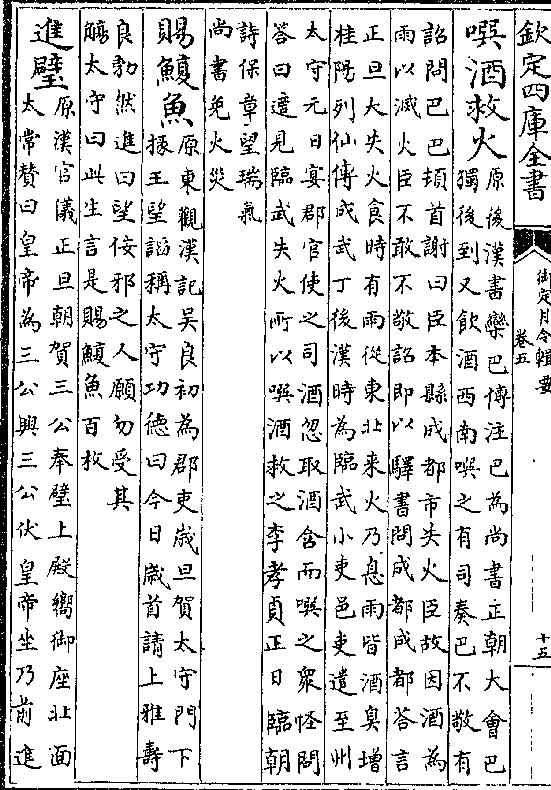 欽定四庫全書
御定月令輯要
卷五
十五
噀酒救火
原後漢書欒巴傳注巴為尚書正朝大會巴
獨後到又飲酒西南噀之有司奏巴不敬有
詔問巴巴頓首謝曰臣本縣成都市失火臣故因酒為
雨以滅火臣不敢不敬詔即以驛書問成都成都答言
正旦大失火食時有雨從東北来火乃息雨皆酒臭增
桂陽列仙傳成武丁後漢時為臨武小吏邑吏遣至州
太守元日宴郡官使之司酒忽取酒含而噀之衆怪問
答曰遥見臨武失火所以噀酒救之李孝貞正日臨朝
詩保章望瑞氣
尚書免火災
賜鰒魚
原東觀漢記吳良初為郡吏嵗旦賀太守門下
掾王望謟稱太守功德曰今日嵗首請上雅壽
良勃然進曰望佞邪之人願勿受其
觴太守曰此生言是賜鰒魚百枚
進璧
原漢官儀正旦朝賀三公奉璧上殿嚮御座北面
太常贊曰皇帝為三公興三公伏皇帝坐乃前進